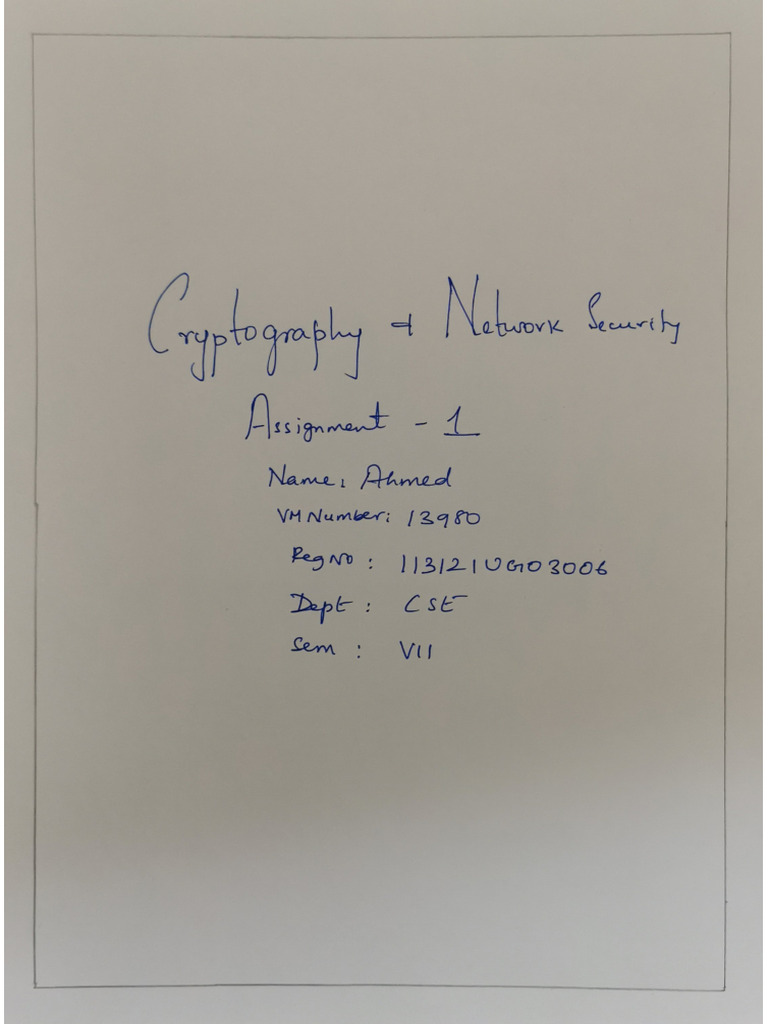 Cryptography & Network Security
Assignment - 1
Name: Ahmed
VM Number: 13980
Reg No : 113121UG03006
Dept : CSE
Sem : VII